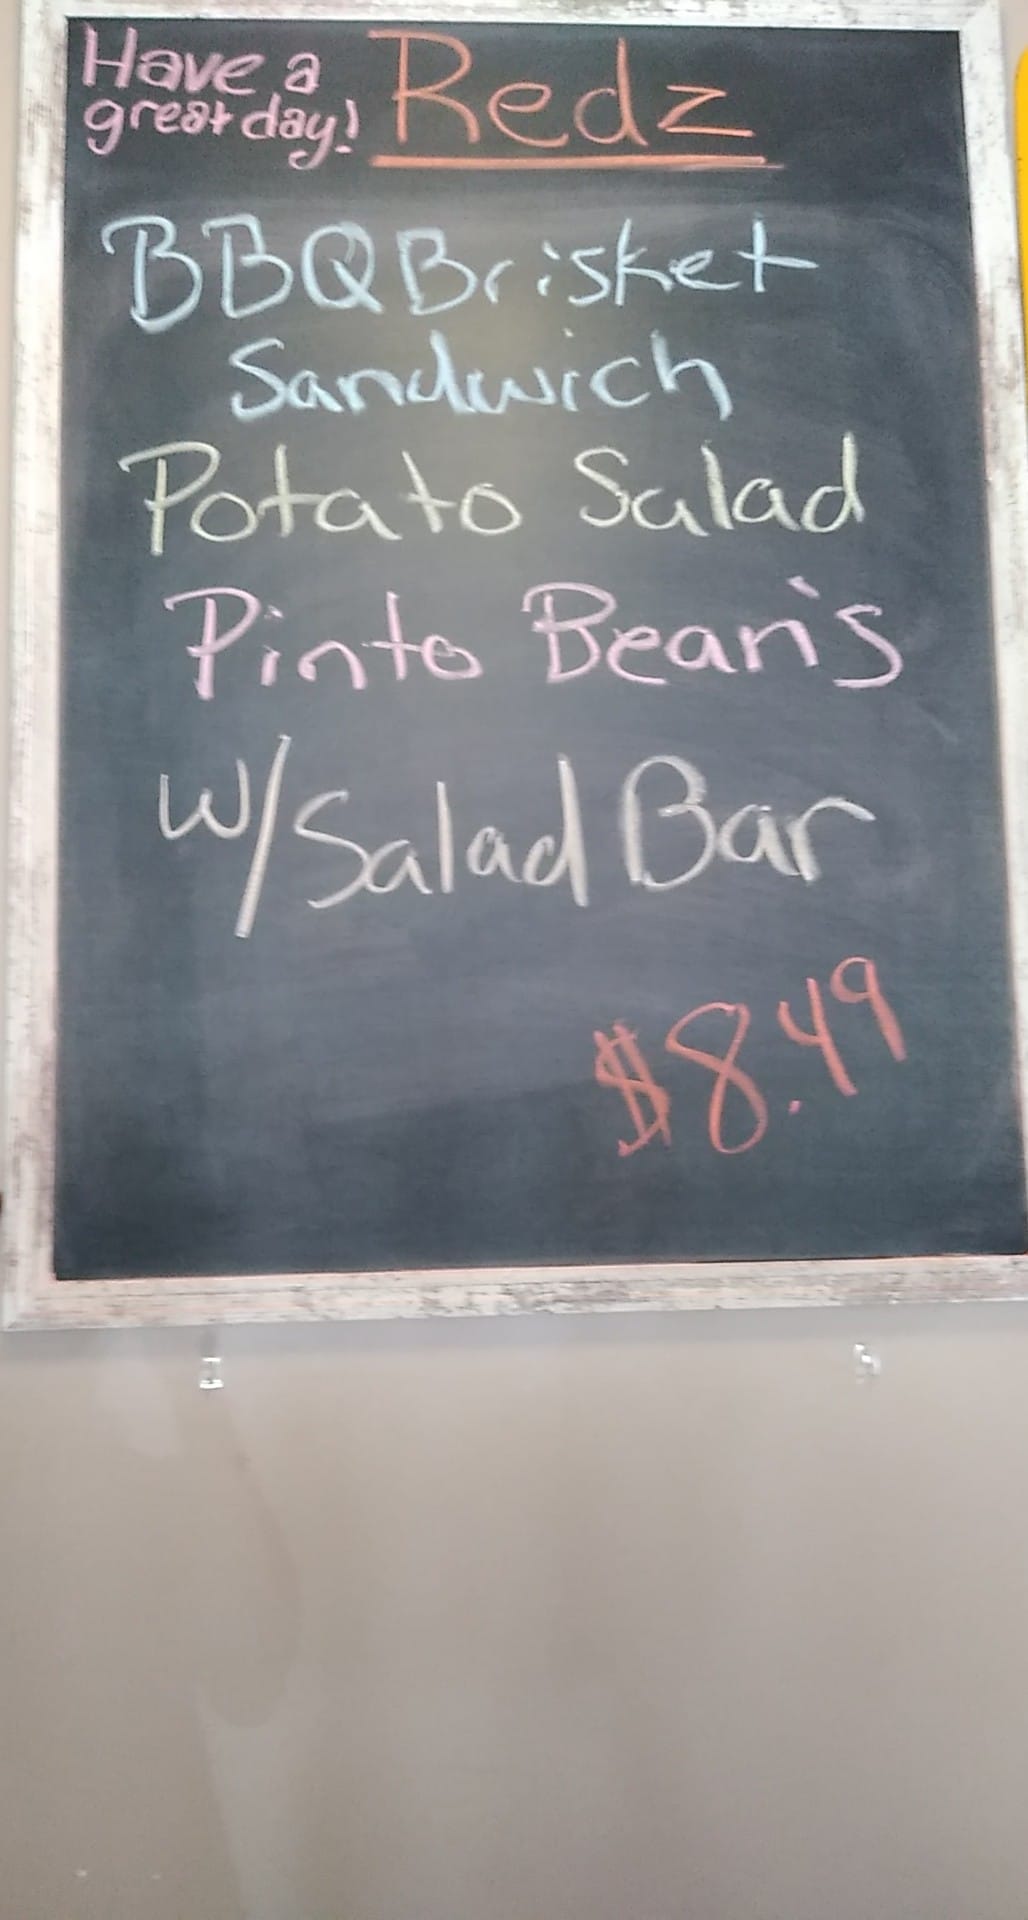 Have a
great day!
Redz
BBQ Brisket
Sandwich
Potato Salad
Pinto Bean's
W/Salad Bar
$8.49